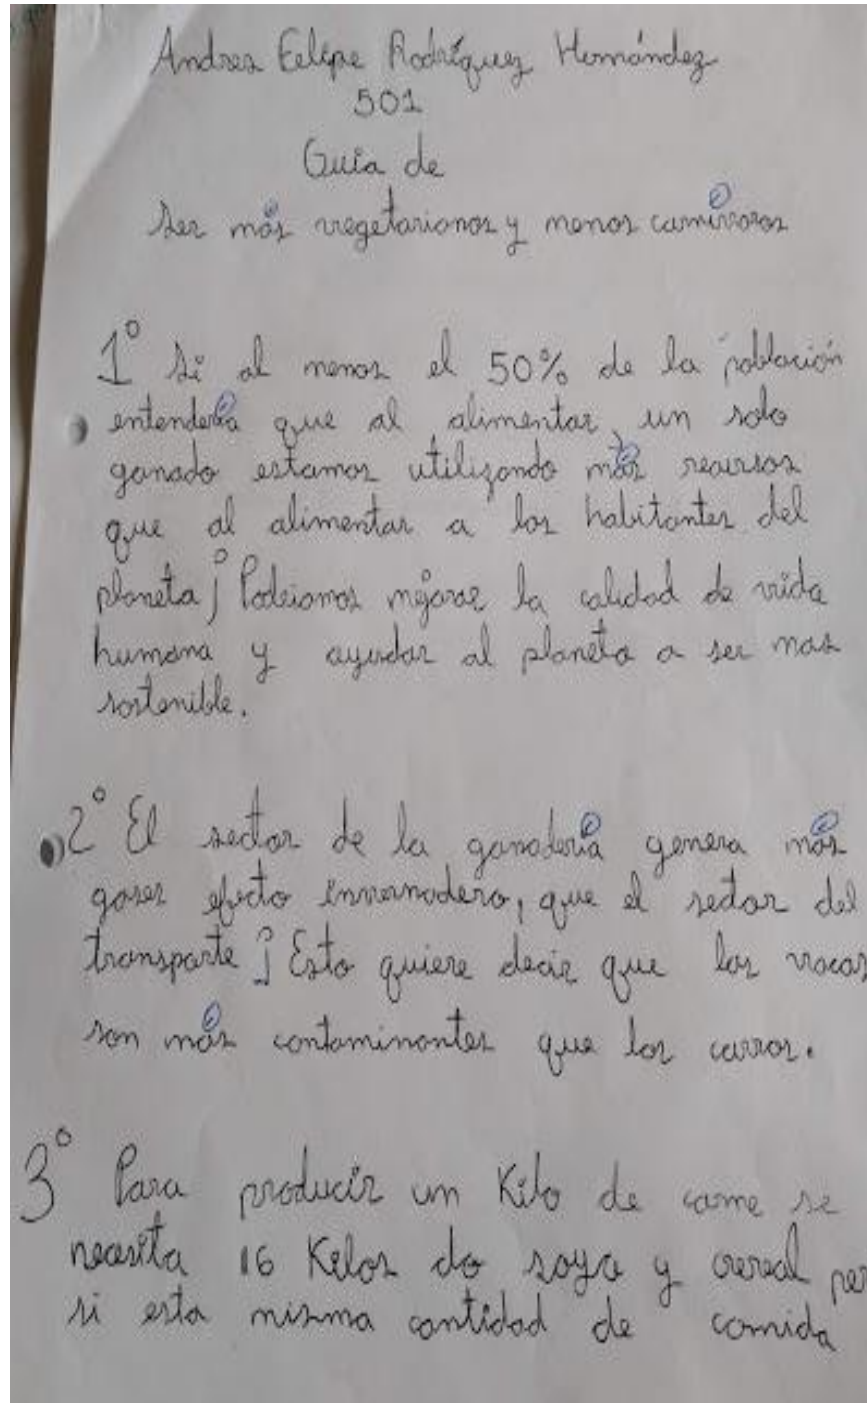 Andres Felipe Rodríguez Hernández
501
Guia de
ser más vegetarianos y menos carnívoros
1° Si al menos el 50% de la población
entendería que al alimentar un solo
ganado estamos utilizando más recursos
que al alimentar a los habitantes del
planeta ¡ Podriamos mejorar la calidad de vida
humana y ayudar al planeta a ser mas
sostenible.
2° El sector de la ganadería genera más
gases efecto invernadero, que el sector del
transporte ¡ Esto quiere decir que las vacas
son más contaminantes que los carros.
3° Para producir un Kilo de carne se
necesita 16 Kilos de soya y cereal per
si esta misma cantidad de comida